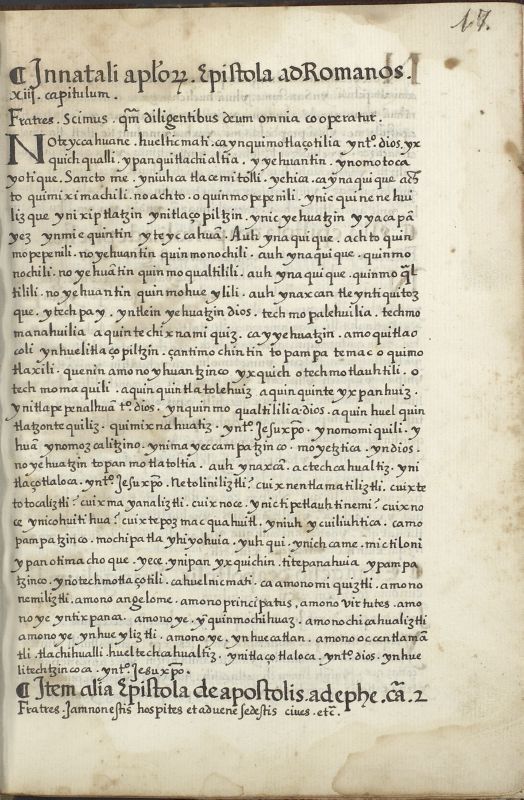 17.
¶ Innatali aplōꝝ. Epistola ad Romanos.
xiij. capitulum.
Fratres. Scimus. qm̄ diligentibus deum omnia cooperatur.
Noteyccahuane. huelticmati. ca ynquimotlaçotilia ynt°. dios. yx
quich qualli. ypan quitlachialtia. yyehuantin. ynomotoca
yotique. Sancto me. yniuhca tlacemitolli. yehica. ca ynaquique achto
to quimiximachili. no achto. oquinmopepenili. ynic quinenehui
lizque ynixiptlatzin ynitlaço piltzin. ynic yehuatzin yyacapā
yez ynmiequintin yteyccahuā. Auh ynaquique. achto quin
mopepenili. noyehuantin quinmonochili. auh ynaquique. quinmo
nochili. noyehuātin quinmoqualtilili. auh ynaquique. quinmo q̄l
tilili. noyehuantin quinmohueylili. auh ynaxcan tleyntiquitoz
que. ytechpay. yntlein yehuatzin dios. techmopalehuilia. techmo
manahuilia aquin techixnamiquiz. ca yyehuatzin. amoquitlao
coli ynhuelitlaçopiltzin. çantimochintin topampa temac oquimo
tlaxili. quenin amono yhuantzinco yxquich otechmotlauhtili. o
techmomaquili. aquin quintlatolehuiz aquin quinteyxpanhuiz.
ynitlapepenalhuā t°. dios. ynquinmo qualtililia. dios. aquin huel quin
tlatzontequiliz. quimixnahuatiz. ynt°. Jesu xp̄o. ynomomiquili. y
huā ynomozcalitzino. ynimayeccampatzinco. moyetztica. yndios.
noyehuatzin topanmotlatoltia. auh ynaxcā. ac techcahualtiz. yni
tlaçotlaloca. ynt°. Jesu xp̄o. Netoliniliztli? cuix nentlamatiliztli? cuix te
totocaliztli? cuix mayanaliztli? cuix noce. ynic tipetlauhtinemi? cuix no
ce ynicohuitihua? cuix tepozmacquahuitl. yniuh ycuiliuhtica. camo
pampatzinco. mochipatla yhiyohuia. yuhqui. ynichcame. mictiloni
ypan otimachoque. yece. ynipan yxquichin. titepanahuia ypampa
tzinco. yn otechmotlaçotili. cahuelnicmati. ca amonomiquiztli. amono
nemiliztli. amono angelome. amono principatus, amono virtutes. amo
noye yntixpanca. amonoye. yquinmochihuaz. amono chicahualiztli
amonoye ynhueyliztli. amonoye. ynhuecatlan. amono occentlamā
tli. tlachihualli. hueltechcahualtiz. ynitlaçotlaloca. ynt°. dios. ynhue
litechtzincoca. ynt°. Jesu xp̄o.
¶ Item alia Epistola de apostolis. ad ephe. cā. 2
Fratres. Jam non estis hospites et aduene sed estis ciues. etc̄.